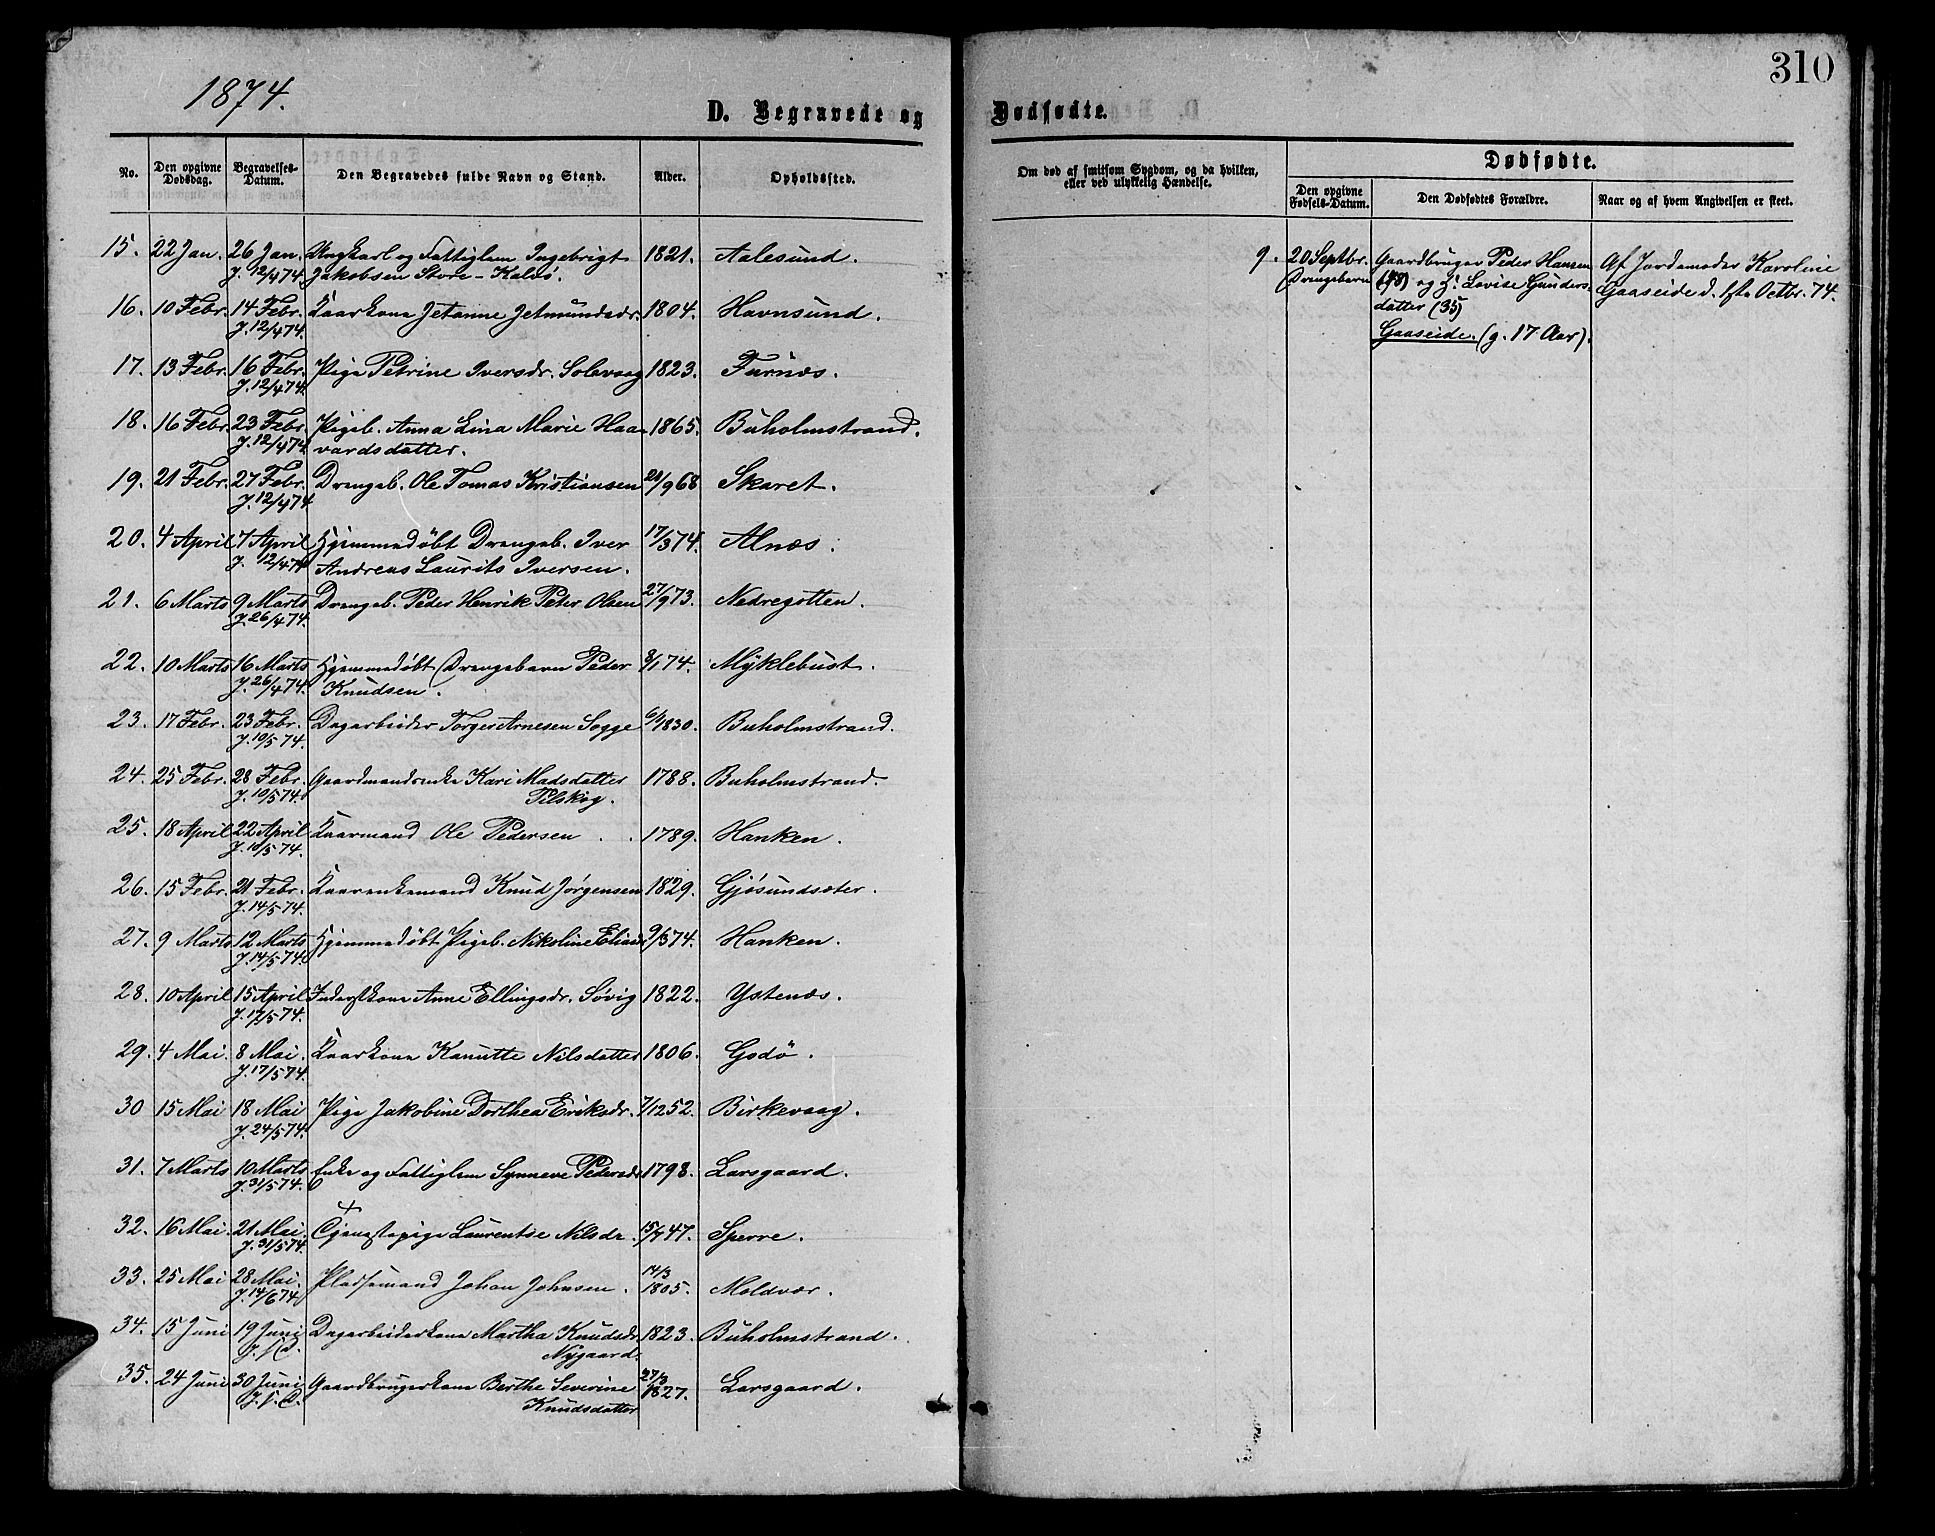 310
1874.
D. Begravede og Dødfødte.
No. Den opgivne Dødsdag. Begravelses-Datum. Den Begravedes fulde Navn og Stand. Alder. Opholdssted.
Om død af smitsom Sygdom, og da hvilken, eller ved ulykkelig Hændelse.
Dødfødte.
Den opgivne Fødsels-Datum. Den Dødfødtes Forældre. Naar og af hvem Angivelsen er skeet.
15. 22 Jan. 26 Jan. Ungkarl og Fattiglem Ingebrigt 1821. Aalesund.
J. 12/4 74. Jakobsen Store-Kalvø.
16. 10 Febr. 14 Febr. Kaarkone Jetanne Jetmundsdr. 1804. Havnsund.
J. 12/4 74.
17. 13 Febr. 16 Febr. Pige Petrine Iversdr. Solevaag 1823. Furnæs.
J. 12/4 74.
18. 16 Febr. 23 Febr. Pigeb. Anna Lina Marie Haa- 1865. Buholmstrand.
J. 12/4 74 vardsdatter.
19. 21 Febr. 27 Febr. Drengeb. Ole Tomas Kristiansen /9 68 Skaret.
J. 12/4 74
20. 4 April 7 April Hjemmedøbt Drengeb. Iver 17/3 74. Alnæs.
J. 12/4 74 Andreas Laurits Iversen.
21. 6 Marts 9 Marts Drengeb. Peder Henrik Peter Olsen 27/9 73. Nedregotten.
J. 26/4 74.
22. 10 Marts 16 Marts Hjemmedøbt Drengebarn Peder 8/1 74. Myklebust.
J. 26/4 74. Knudsen.
23. 17 Febr. 23 Febr. Dagarbeider Torger Arnesen Sogge 1830. Buholmstrand.
J. 10/5 74.
24. 25 Febr. 28 Febr. Gaardmandsenke Kari Madsdatter 1788. Buholmstrand.
J. 10/5 74. Pilskog.
25. 18 April 22 April Kaarmand Ole Pedersen 1789. Hanken.
J. 10/5 74.
26. 15 Febr. 21 Febr. Kaarenkemand Knud Jørgensen 1829. Gjøsundsæter.
J. 14/5 74.
27. 9 Marts 12 Marts Hjemmedøbt Pigeb. Nikoline Eliasdr 9/3 74. Hanken.
J. 14/5 74.
28. 10 April 15 April Inderstkone Anne Ellingsdr. Søvig 1822. Ystenæs.
J. 17/5 74.
29. 4 Mai. 8 Mai. Kaarkone Kanutte Nilsdatter 1806. Godø.
J. 17/5 74.
30 15 Mai 18 Mai Pige Jakobine Dorthea Eriksdr. 7/12 52. Birkevaag.
J. 24/5 74.
31. 7 Marts 10 Marts Enke og Fattiglem Synneve Pedersdr 1798. Larsgaard.
J. 31/5 74.
32. 16 Mai. 21 Mai. Tjenestepige Laurentse Nilsdr. 15/7 47. Sperre.
J. 31/5 74.
33. 25 Mai 28 Mai. Pladsemand Johan Johnsen. 14/3 1805. Moldvær.
J. 14/6 74
34. 15 Juni 19 Juni Dagarbeiderkone Martha Knudsdr. 1823. Buholmstrand.
J. s. D. Nygaard.
35. 24 Juni 30 Juni Gaardbrugerkone Berthe Severine 27/3 1827. Larsgaard.
J. s. D. Knudsdatter
9. 20 Septbr. Gaardbruger Peder Hansen Af Jordemoder Karoline
Drengebarn (48) og H. Lovise Gunders- Gaaseide d. 1ste Octbr. 74.
datter (35)
Gaaseide. (g. 17 Aar).